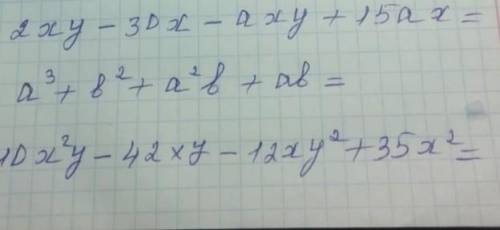 2xy - 30x - axy + 15ax =
a³ + b² + a²b + ab =
10x²y - 42xy - 12xy² + 35x² =